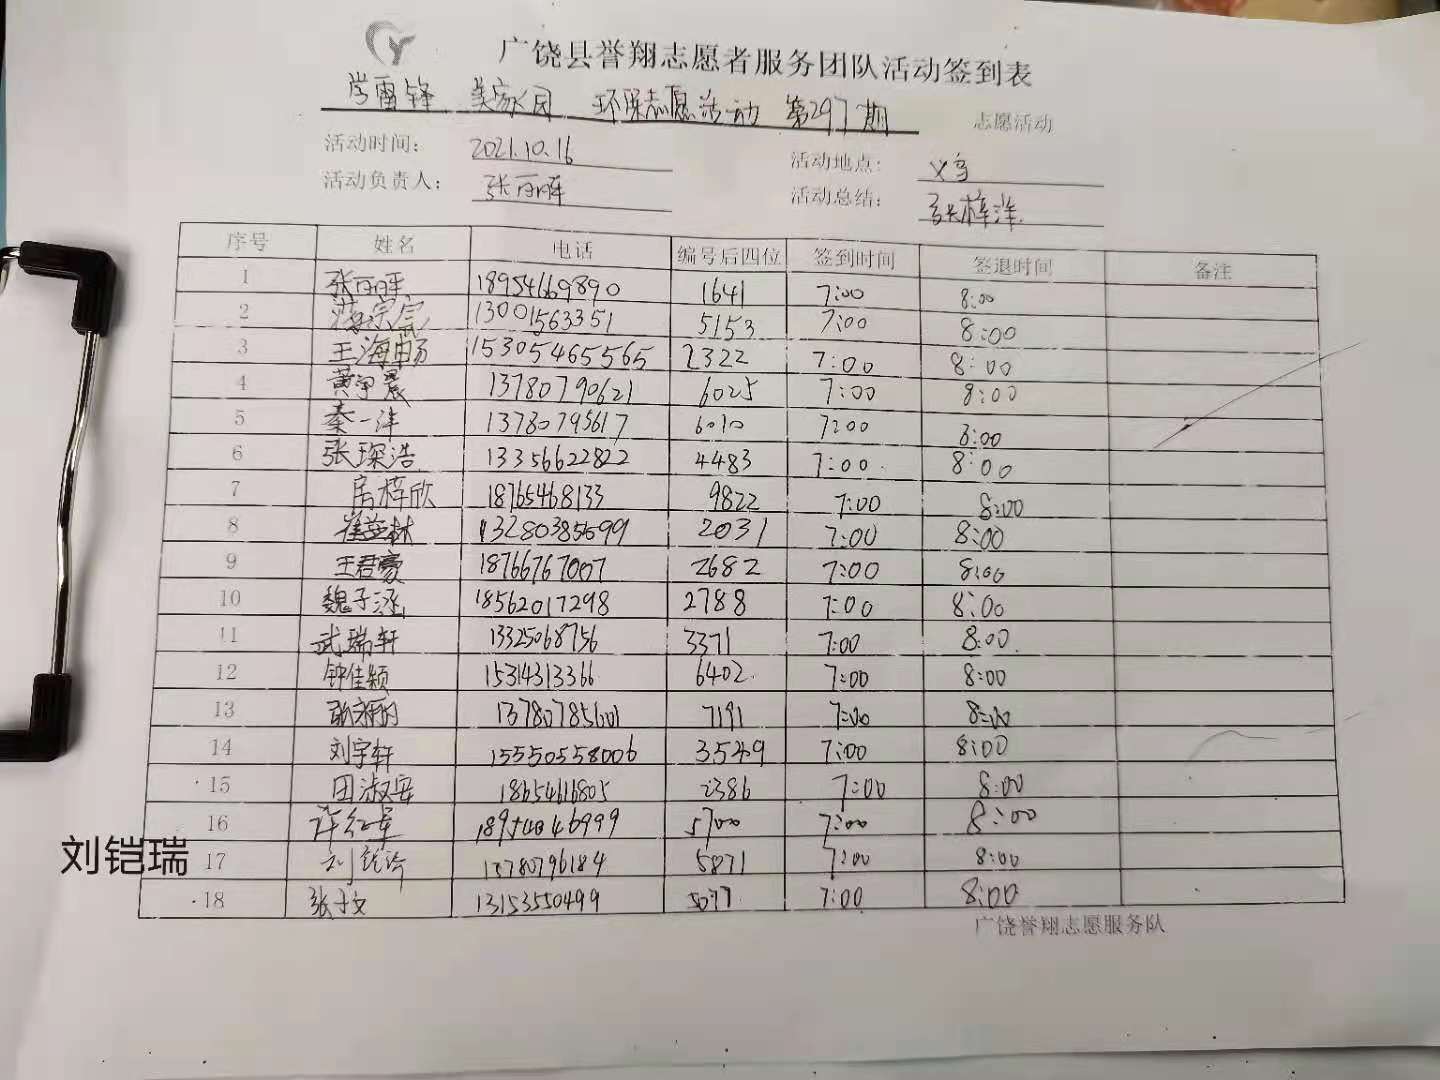 广饶县誉翔志愿者服务团队活动签到表
学雷锋 美家园 环保志愿活动 第297期 志愿活动
活动时间： 2021.10.16 活动地点： 义乌
活动负责人： 张丽晖 活动总结： 张梓洋
序号 姓名 电话 编号后四位 签到时间 签退时间 备注
1 张丽晖 18954669890 1641 7:00 8:00
2 13001563351 5153 7:00 8:00
3 王海畅 15305465565 2322 7:00 8:00
4 黄宇晨 13780790621 6025 7:00 8:00
5 秦一洋 13780795617 6010 7:00 8:00
6 张琛浩 13356622822 4483 7:00 8:00
7 房梓欣 18765468133 9822 7:00 8:00
8 崔益林 2031 7:00 8:00
9 王君豪 18766767007 2682 7:00 8:00
10 魏子涵 18562017298 2788 7:00 8:00
11 武瑞轩 13325068756 3371 7:00 8:00
12 钟佳颖 15314313366 6402 7:00 8:00
13 13780785601 7191 7:00 8:00
14 刘宇轩 15550558006 3549 7:00 8:00
15 田淑安 18654616805 2386 7:00 8:00
16 许红军 5700 7:00 8:00
刘铠瑞 17 13780796184 5871 7:00 8:00
18 张子文 13153550499 5077 7:00 8:00
广饶誉翔志愿服务队